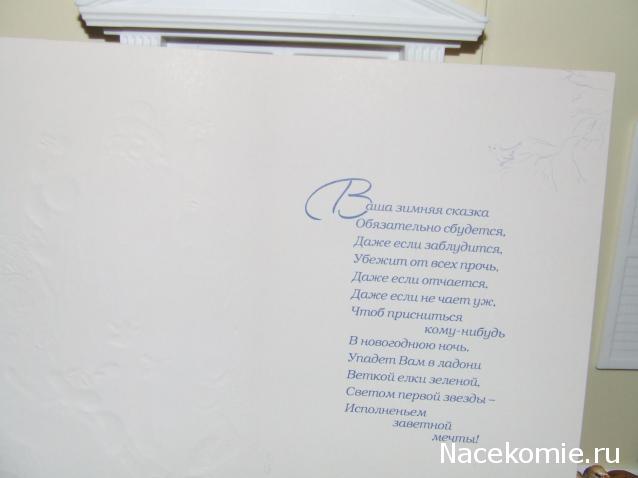 Ваша зимняя сказка
Обязательно сбудется,
Даже если заблудится,
Убежит от всех прочь,
Даже если отчается,
Даже если не чает уж,
Чтоб присниться
кому-нибудь
В новогоднюю ночь,
Упадет Вам в ладони
Веткой елки зеленой,
Светом первой звезды –
Исполненьем
заветной
мечты!
Nacekomie.ru